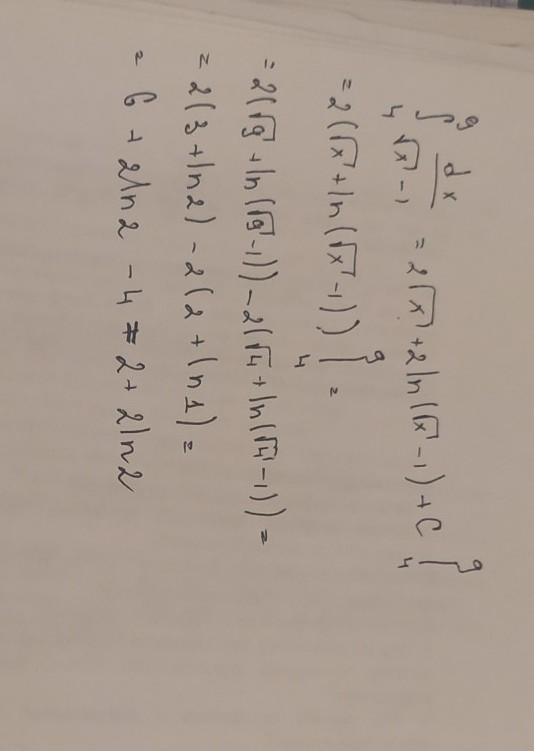 ∫₄⁹ dx/(√x - 1) = 2√x + 2 ln(√x - 1) + C |₄⁹
= 2(√x + ln(√x - 1)) |₄⁹ =
= 2(√9 + ln(√9 - 1)) - 2(√4 + ln(√4 - 1)) =
= 2(3 + ln 2) - 2(2 + ln 1) =
= 6 + 2 ln 2 - 4 ≠ 2 + 2 ln 2